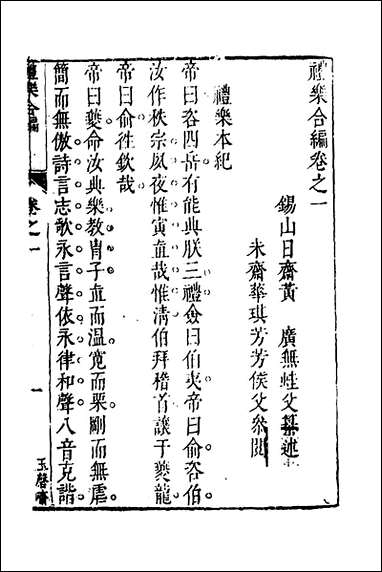 禮樂合編卷之一
錫山日齋黃廣無蛙父纂述
朱齋華琪芳芳侯父參閱
禮樂本紀
帝曰咨四岳有能典朕三禮僉曰伯夷帝曰俞咨伯
汝作秩宗夙夜惟寅直哉惟清伯拜稽首讓于夔龍
帝曰俞徃欽哉
帝曰夔命汝典樂教胄子直而溫寛而栗剛而無虐
簡而無傲詩言志歌永言聲依永律和聲八音克諧
禮樂合編
卷之一
一
玉磬齋